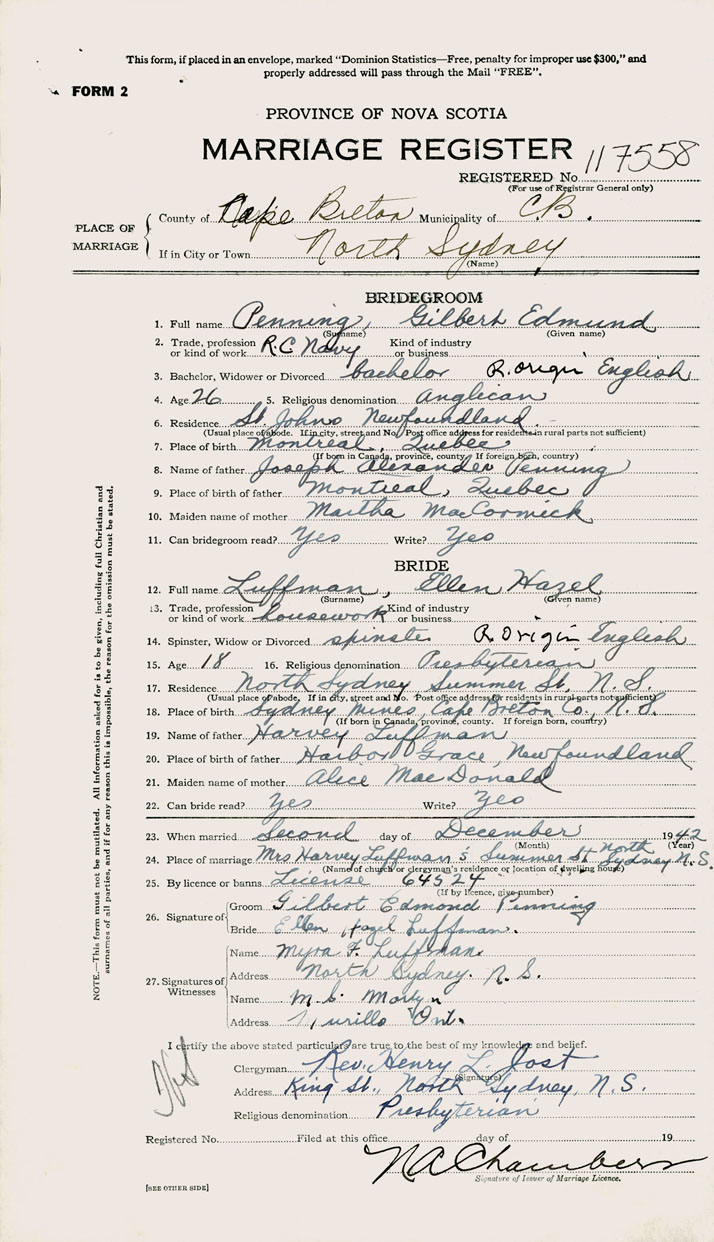 This form, if placed in an envelope, marked "Dominion Statistics—Free, penalty for improper use $300," and
properly addressed will pass through the Mail "FREE".
FORM 2
PROVINCE OF NOVA SCOTIA
MARRIAGE REGISTER
REGISTERED No. 117558
(For use of Registrar General only)
PLACE OF MARRIAGE
County of Cape Breton Municipality of C.B.
If in City or Town North Sydney
(Name)
BRIDEGROOM
1. Full name Penning, Gilbert Edmund
(Surname) (Given name)
2. Trade, profession or kind of work R.C Navy Kind of industry or business
3. Bachelor, Widower or Divorced bachelor R. origin English
4. Age 26 5. Religious denomination Anglican
6. Residence St. Johns Newfoundland.
(Usual place of abode. If in city, street and No. Post office address for residents in rural parts not sufficient)
7. Place of birth Montreal, Quebec
(If born in Canada, province, county. If foreign born, country)
8. Name of father Joseph Alexander Penning
9. Place of birth of father Montreal, Quebec
10. Maiden name of mother Martha MacCormick
11. Can bridegroom read? Yes Write? Yes
BRIDE
12. Full name Luffman, Ellen Hazel
(Surname) (Given name)
13. Trade, profession or kind of work housework Kind of industry or business
14. Spinster, Widow or Divorced spinster R. Origin English
15. Age 18 16. Religious denomination Presbyterian
17. Residence North Sydney Summer St, N. S.
(Usual place of abode. If in city, street and No. Post office address for residents in rural parts not sufficient)
18. Place of birth Sydney Mines, Cape Breton Co., N. S.
(If born in Canada, province, county. If foreign born, country)
19. Name of father Harvey Luffman
20. Place of birth of father Harbor Grace, Newfoundland
21. Maiden name of mother Alice MacDonald
22. Can bride read? Yes Write? Yes
23. When married Second day of December 1942
(Month) (Year)
24. Place of marriage Mrs Harvey Luffman's Summer St North Sydney N.S.
(Name of church or clergyman's residence or location of dwelling house)
25. By licence or banns License 64524
(If by licence, give number)
26. Signature of
Groom Gilbert Edmond Penning
Bride Ellen Hazel Luffman.
27. Signatures of Witnesses
Name Myra F. Luffman.
Address North Sydney. N. S.
Name
Address Ont.
I certify the above stated particulars are true to the best of my knowledge and belief.
Clergyman Rev. Henry L. Jost
(Signature)
Address King St., North Sydney, N.S.
Religious denomination Presbyterian
Registered No. Filed at this office day of 19
N A Chambers
Signature of Issuer of Marriage Licence.
[SEE OTHER SIDE]
NOTE.—This form must not be mutilated. All information asked for is to be given, including full Christian and
surnames of all parties, and if for any reason this is impossible, the reason for the omission must be stated.